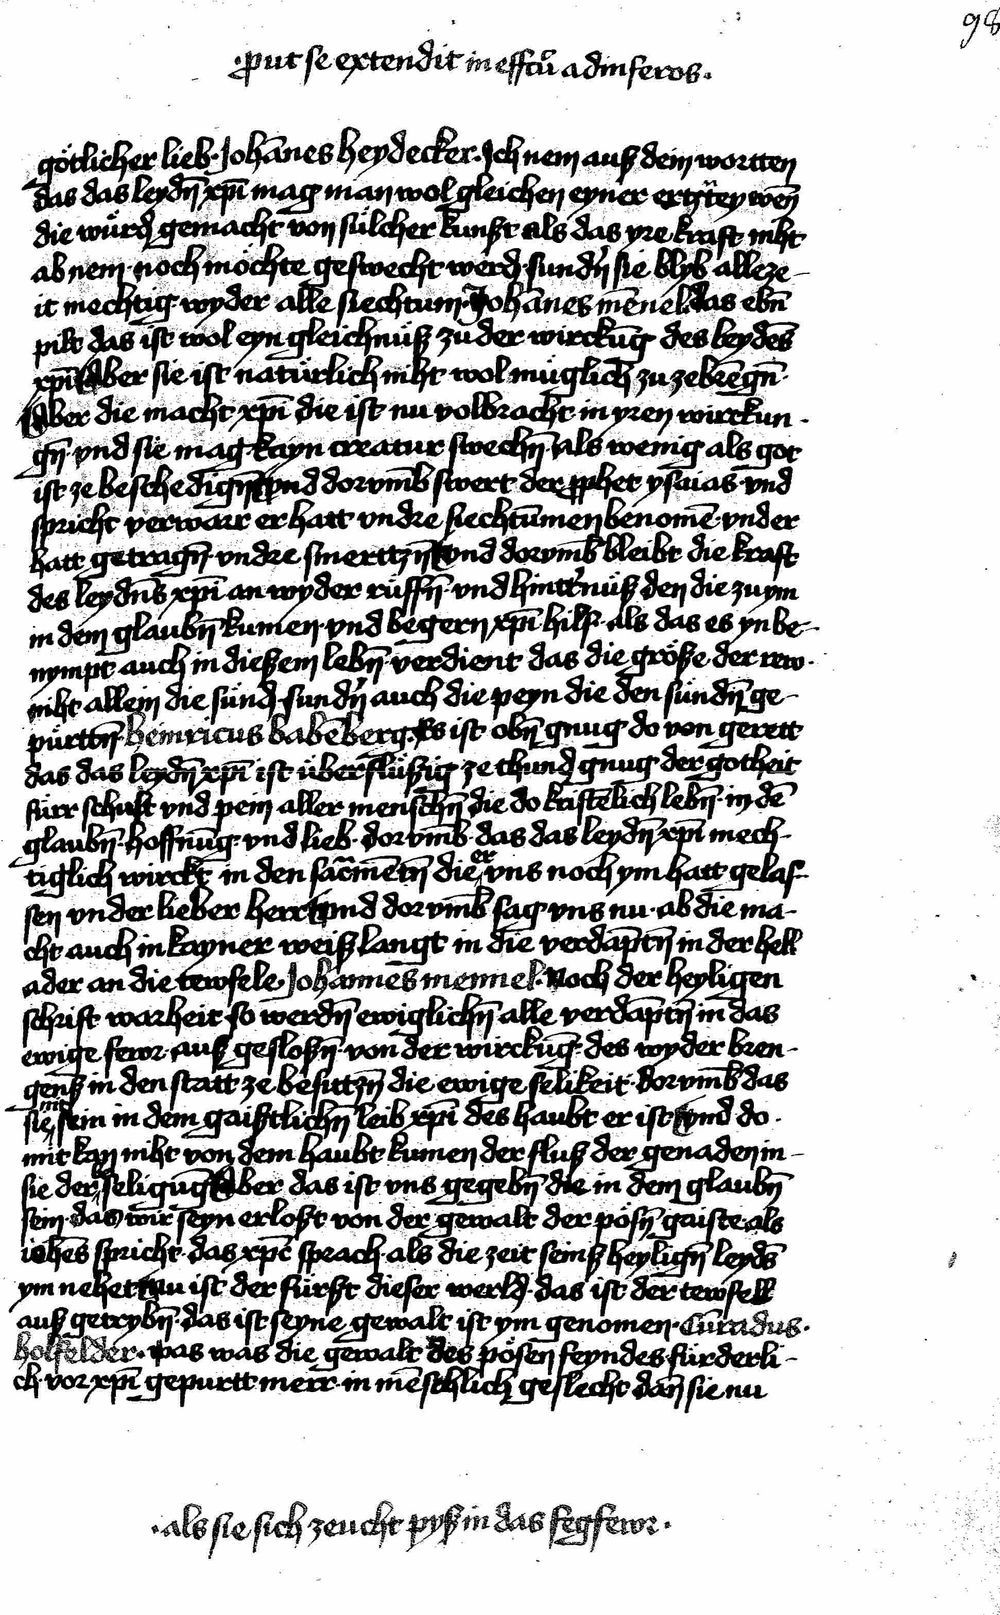 98
·put se extendit in effctū ad inferos·
götlicher lieb· Johānes heydecker· Ich nem auß dein wortten
das das leydn̄ xp̄i mag man wol gleichen eyner ertztey wen̄
die würd gemacht von sülcher kunst als das yre kraft niht
ab nem· noch möchte geswecht werd· sundn̄ sie blyb alleze-
it mechtig· wyder alle siechtum· Johānes mēnel· das ebn̄
pilt das ist wol eyn gleichnüß zu der wirckūg des leydēs
xp̄i Aber sie ist natürlich niht wol müglich zu zebrēgn̄·
Aber die macht xp̄i die ist nu volbracht in yren wirckun-
gn̄· vnd sie mag kayn creatur swechn̄· als wenig als got
ist ze beschedign̄ vnd dorvm̄b swert der ꝓphet ysaias· vnd
spricht verwarr er hatt vndre siechtūmen benomē· vnder
hatt getragn̄· vndre smertzn̄ vnd dorvm̄b bleibt die kraft
des leydn̄s xp̄i an wyder rüffn̄· vnd hintt'nüß den die zu ym
in dem glaubn̄ kumen· vnd begern xp̄i hilf· als das es yn be-
nympt· auch in dießem lebn̄· verdient das die größe der rew·
niht allein die sünd· sundn̄ auch die peyn die den sündn̄ ge-
pürttn̄· heinricus babēberg· Es ist obn̄ gnug do von gerett
das das leydn̄ xp̄i ist überflüßig ze thund gnug der gotheit
fürr schult vnd pein aller menschn̄ die do kristēlich lebn̄· in dē
glaubn̄· hoffnūg· vnd lieb· dorvm̄b· das das leydn̄ xp̄i mech-
tiglich wirckt in den sac̄mētn̄ die er vns noch ym hatt gelas-
sen vnder lieber herr vnd dorvm̄b sag vns nu· ab die ma-
cht auch in kayner weiß langt in die verdāptn̄ in der hell
ader an die tewfele· Johannes mennel· Noch der heyligen
schrift warheit so werdn̄ ewiglichn̄ alle verdāptn̄ in das
ewige fewr· auß gesloßn̄· von der wirckūg· des wyder bren-
genß in den statt ze besitzn̄ die ewige selikeit· dorvm̄b das
sie nit sein in dem gaistlichn̄ leib xp̄i des haubt er ist vnd do·
mit kan niht von dem haubt kumen der fluß der genaden in-
sie der seligūg Aber das ist vns gegebn̄ die in dem glaubn̄
sein· das wir seyn erloßt von der gewalt der pösn̄ gaiste· als
iohēs spricht· das xp̄c sprach· als die zeit seinß heylign̄ leydēs
ym nehet nu ist der fürst dieser werld· das ist der tewfell
auß getrybn̄· das ist seyne gewalt ist ym genomen· Cūradus·
holfelder· was was die gewalt des pösen feyndes fürderli-
ch· vor xp̄i gepurtt merr· in mēschlich geslecht dan̄ sie nu
·als sie sich zeucht pyß in das fegfewr·